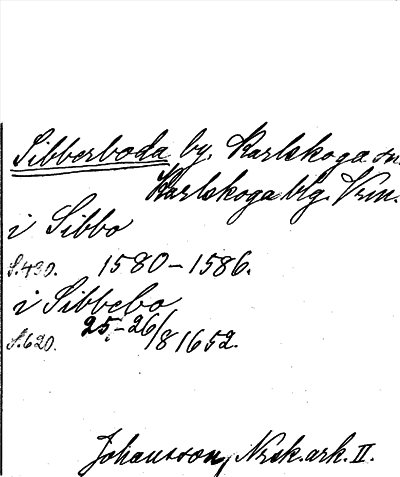 Sibberboda by, Karlskoga sn.
Karlskoga blg. Vrm.
i Sibbo
S.430. 1580–1586.
i Sibbebo
S.620. 25–26/8 1652.
Johansson, Norsk.ark. II.